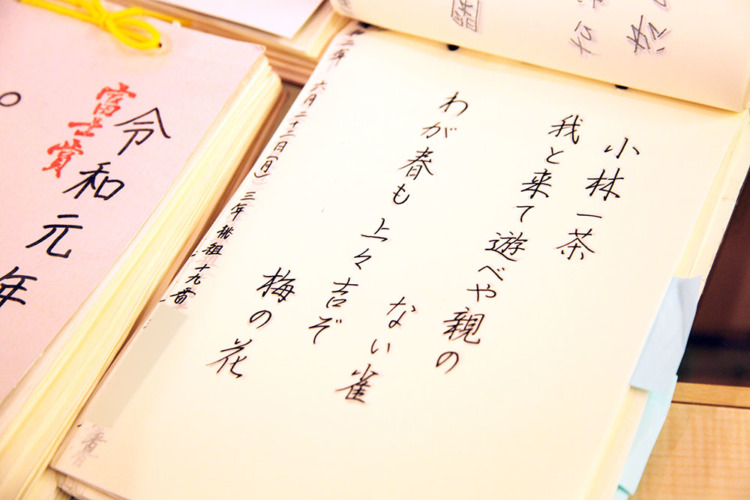 小林一茶
我と来て遊べや親の
ない雀
わが春も上々吉ぞ
梅の花
六月二十二日(月)
三年梅組十九番
富士賞
令和元年